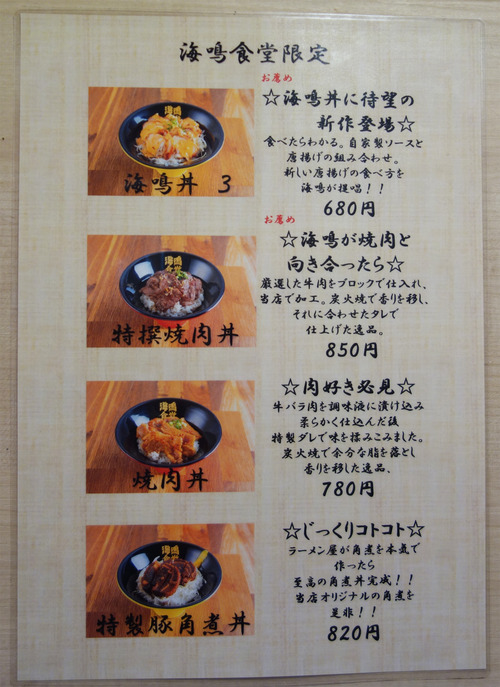 海鳴食堂限定
お薦め
☆海鳴丼に待望の
新作登場☆
食べたらわかる。自家製ソースと
唐揚げの組み合わせ。
新しい唐揚げの食べ方を
海鳴が提唱！！
680円
海鳴丼 3
お薦め
☆海鳴が焼肉と
向き合ったら☆
厳選した牛肉をブロックで仕入れ、
当店で加工。炭火焼で香りを移し、
それに合わせたタレで
仕上げた逸品。
850円
特撰焼肉丼
☆肉好き必見☆
牛バラ肉を調味液に漬け込み
柔らかく仕込んだ後
特製ダレで味を揉みこみました。
炭火焼で余分な脂を落とし
香りを移した逸品、
780円
焼肉丼
☆じっくりコトコト☆
ラーメン屋が角煮を本気で
作ったら
至高の角煮丼完成！！
当店オリジナルの角煮を
是非！！
820円
特製豚角煮丼